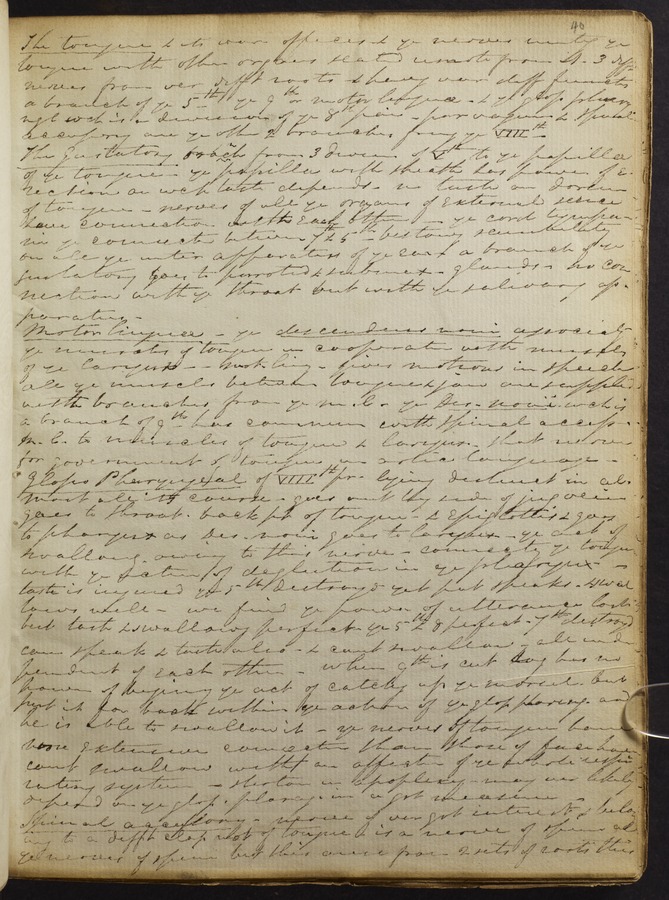 40
The tongue & its var offices & ye nerves unite ye
tongue with other organs seated remote from it. 3 diff
nerves from var difft roots & having var diff functs
a branch of ye 5th ye 9th or motor linguae & ye glop. phary
ngl wch is a division of ye 8th pair - par vagum & spinal
accessory are ye other 2 branches ye VIIIth
The Gustatory from 3 division of 5th to ye papillae
of ye tongue - ye papillae with sheath has power of E-
rection on wch taste depends no taste on dorsum
of tongue - nerves of all ye organs of External sense
have connection with Each other - ye cord tympa-
ni ye connects between 7th & 5th - bestows sensibility
on all ye inter apparatus of ye ear & a branch of ye
gustatory goes to parrotid & submax. glands - no con
nection with ye throat but with ye salivary ap-
paratus -
Motor linguae - ye descendens noni associate
ye muscles of tongue in cooperation with muscles
of ye larynx - mot. ling. gives motions in speech
all ye muscles between tongue & jaw are supplied
with branches from ye m. l. ye Des. noni wch is
a branch of 9th has commun with spinal access.
m. l. to muscles of tongue & larynx - that nerve
for government of tongue in artic language -
Glosso Pharyngeal of VIIIth pr. lying distinct in al-
most all its course - goes out by side of jug vein
goes to throat. back pt of tongue & Epiglottis & goes
to pharynx as Des. noni goes to larynx - ye act of
swallowg owing to this nerve - connects ye tongue
with ye action of deglutition in ye pharynx -
taste is injured ye 5th destroyd yet pat speaks & swal
lows well - we find ye power of utterance lost
but taste & swallowg perfect ye 5th & 8 perfect - 9th destroyd
can speak & taste also - & cant swallow all inde
pendent of each other - when 9th is cut dog has no
power of ye act of catchg up ye morsel but
put it far back within ye action of ye glop. pharyng. and
he is able to swallow it - ye nerves of tongue have
more Extensive connectn than those of face have
cant swallow with an affectn of ye whole respi
ratory system - in apoplexy - may very likely
depend on ye glop. pharyng. in a gt measure -
Spinal accessory - nerve of very gt interest & belong
ing to a difft dept of tongue is a nerve of spine all
ye nerves of spine but this arise from 2 sets of roots this